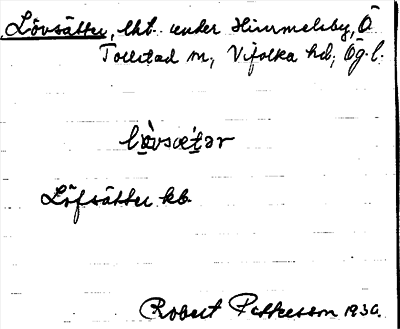 Lövsätter, lht. under Himmelsby, Ö
Tollstad sn, Vifolka hd, Ög. l.
lö̀vsætər
Löfsätter kb.
Robert Pettersson 1930.